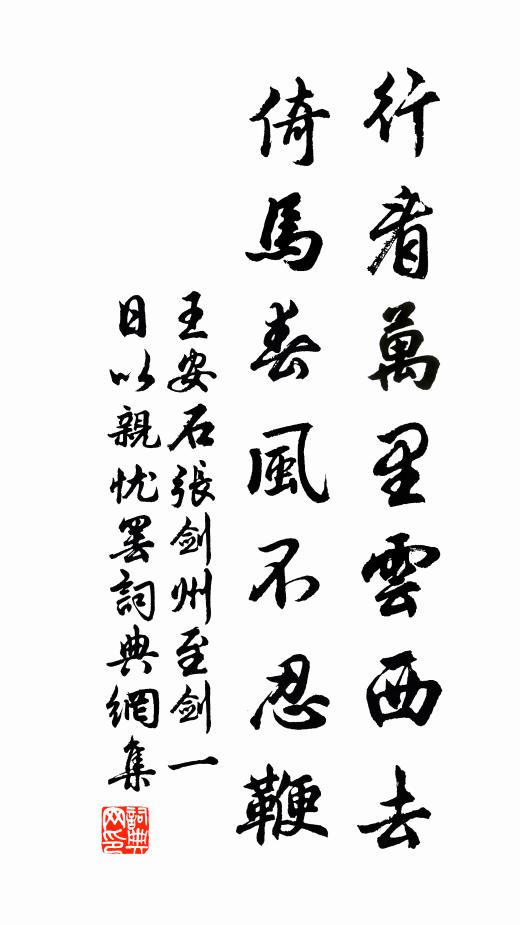 行看萬里雲西去
倚馬春風不忍鞭
王安石張剑州至剑一
日以親忧罢詞典網集
詞典
网印